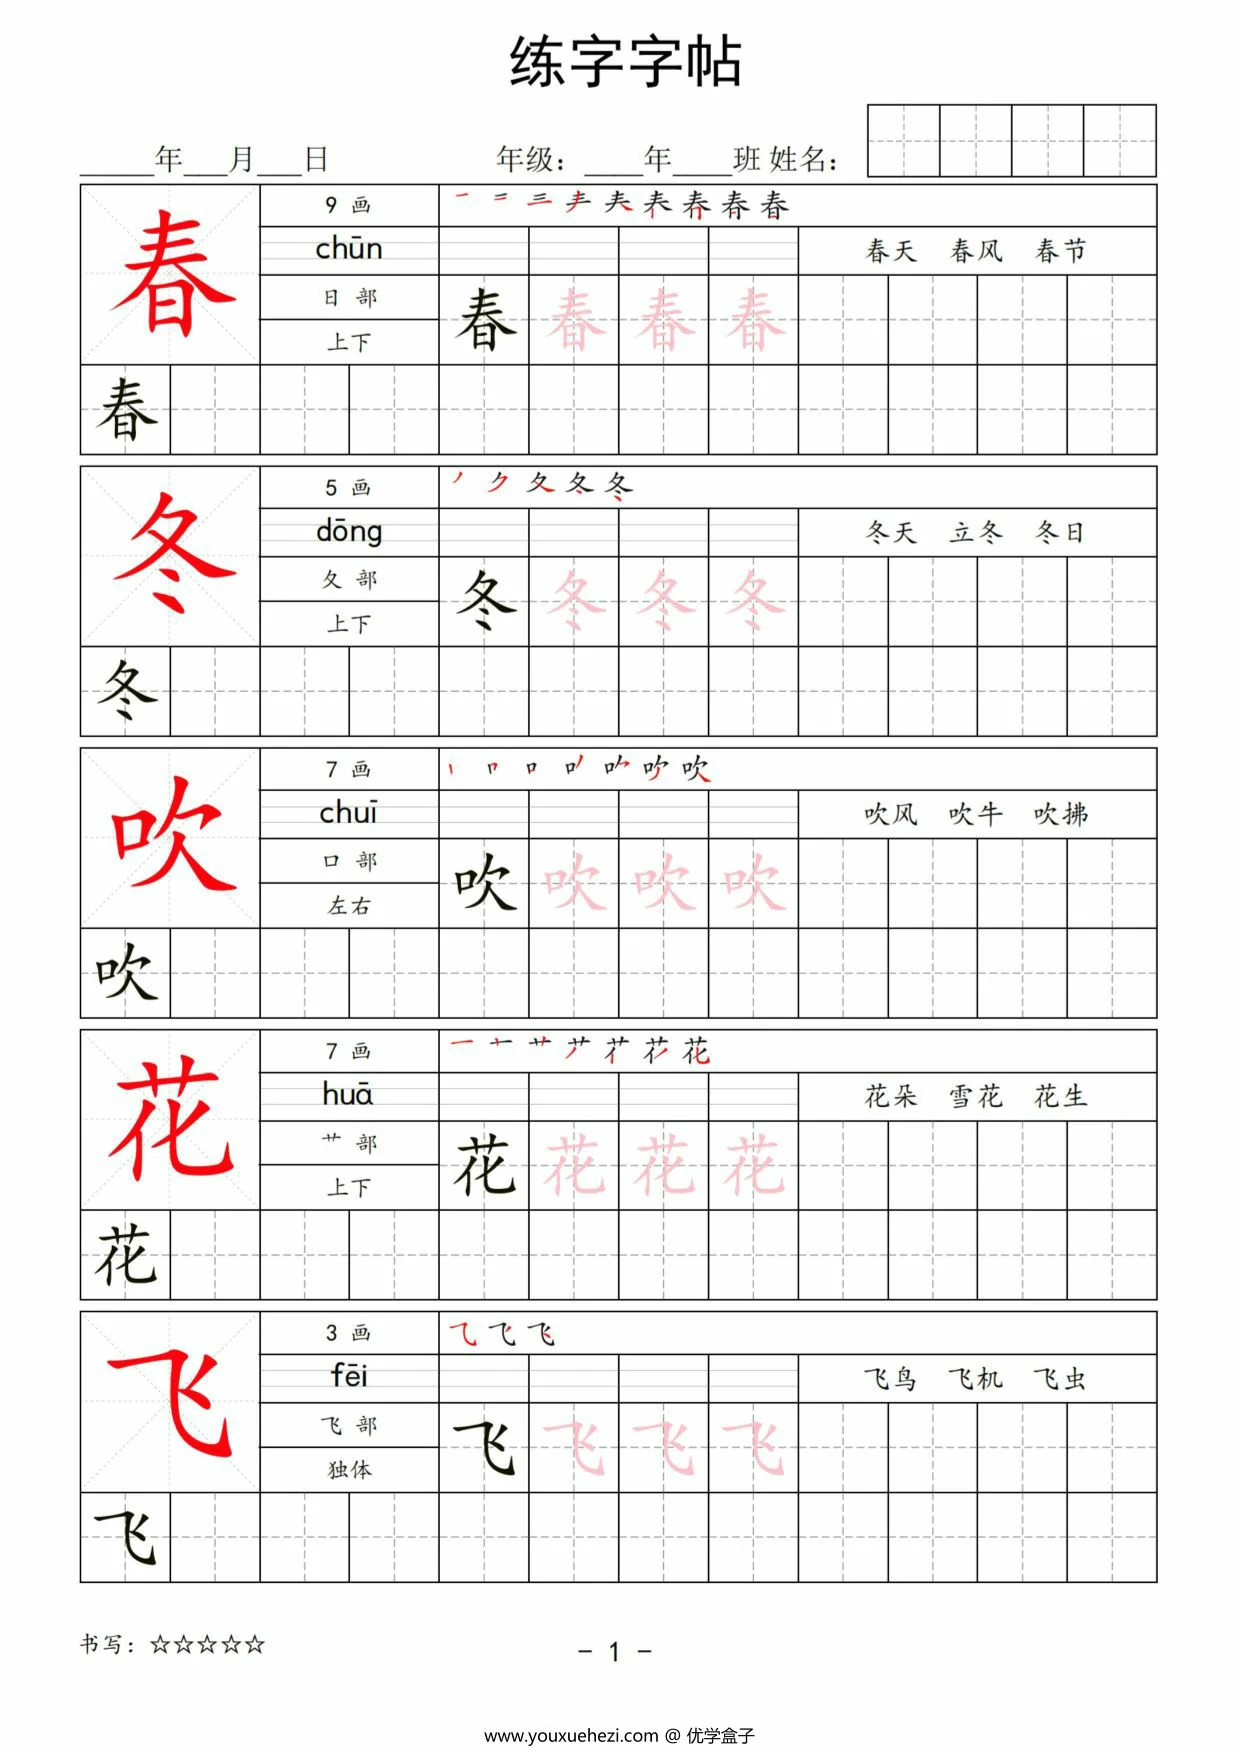 练字字帖
_____年___月___日 年级：____年____班 姓名：
春 9 画
chūn 春天 春风 春节
日 部 春 春 春 春
上下
春
冬 5 画
dōng 冬天 立冬 冬日
夂 部 冬 冬 冬 冬
上下
冬
吹 7 画
chuī 吹风 吹牛 吹拂
口 部 吹 吹 吹 吹
左右
吹
花 7 画
huā 花朵 雪花 花生
艹 部 花 花 花 花
上下
花
飞 3 画
fēi 飞鸟 飞机 飞虫
飞 部 飞 飞 飞 飞
独体
飞
书写：☆☆☆☆☆ - 1 -
www.youxuehezi.com @ 优学盒子